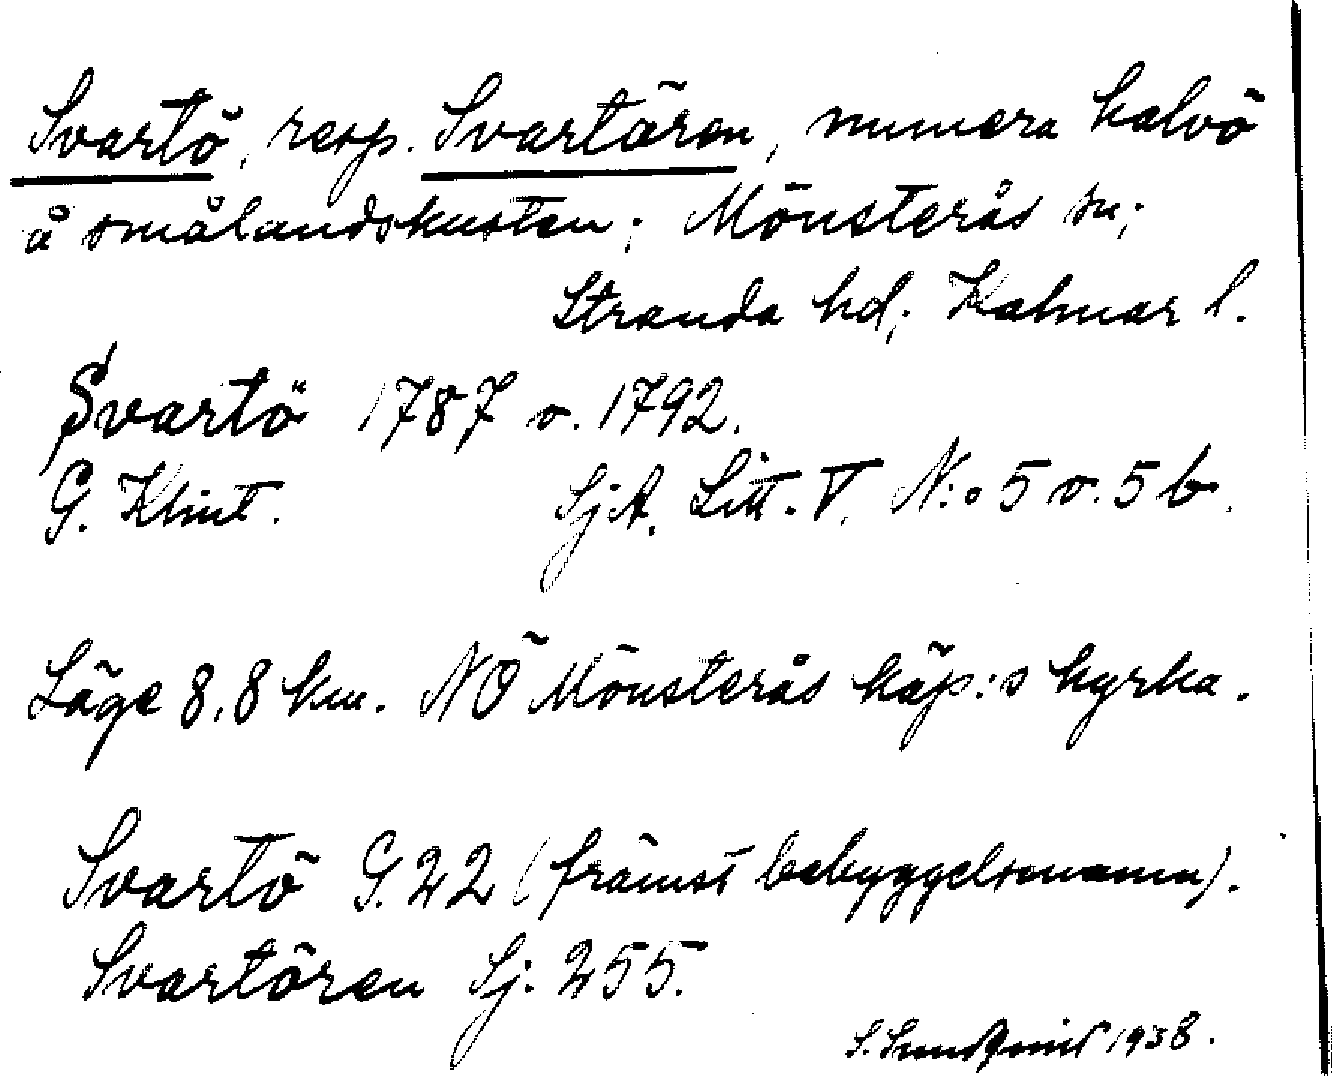 Svartö, resp. Svartören, numera halvö
å smålandskusten; Mönsterås sn;
Stranda hd; Kalmar l.
Svartö 1787 o. 1792.
G. Klint. SjA. Litt. V. N:o 5 o. 5 b.
Läge 8,8 km. NÖ Mönsterås köp:s kyrka.
Svartö G. 22 (främst bebyggelsenamn).
Svartören Sj. 255.
S. Sundqvist 1938.